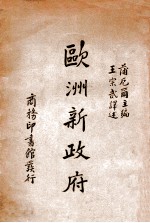 蒲徳爾主編
王宗武譯述
歐洲新政府
商務印書館發行